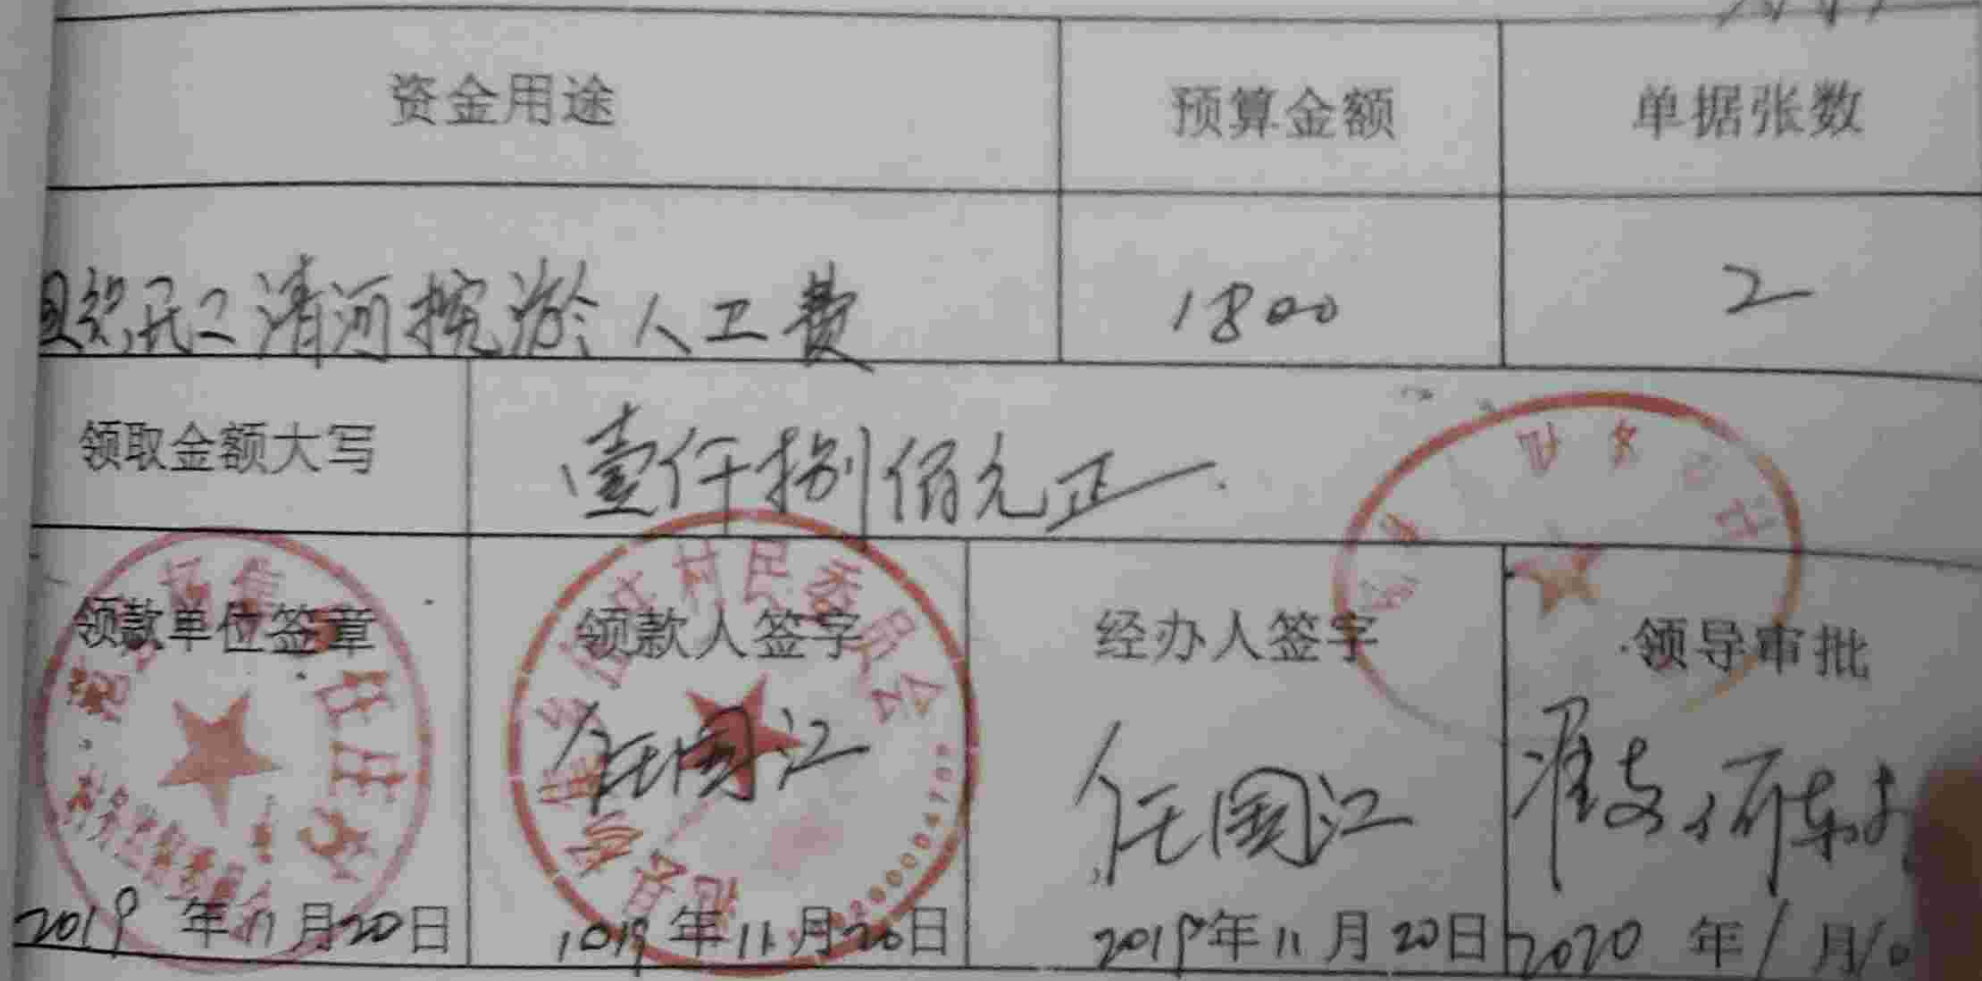 资金用途 预算金额 单据张数
民工清河挖淤人工费 1800 2
领取金额大写 壹仟捌佰元正
领款单位签章 领款人签字 经办人签字 领导审批
村民委员会
任国江 任国江 准支
2019年11月20日 2019年11月20日 2019年11月20日 2020年1月10